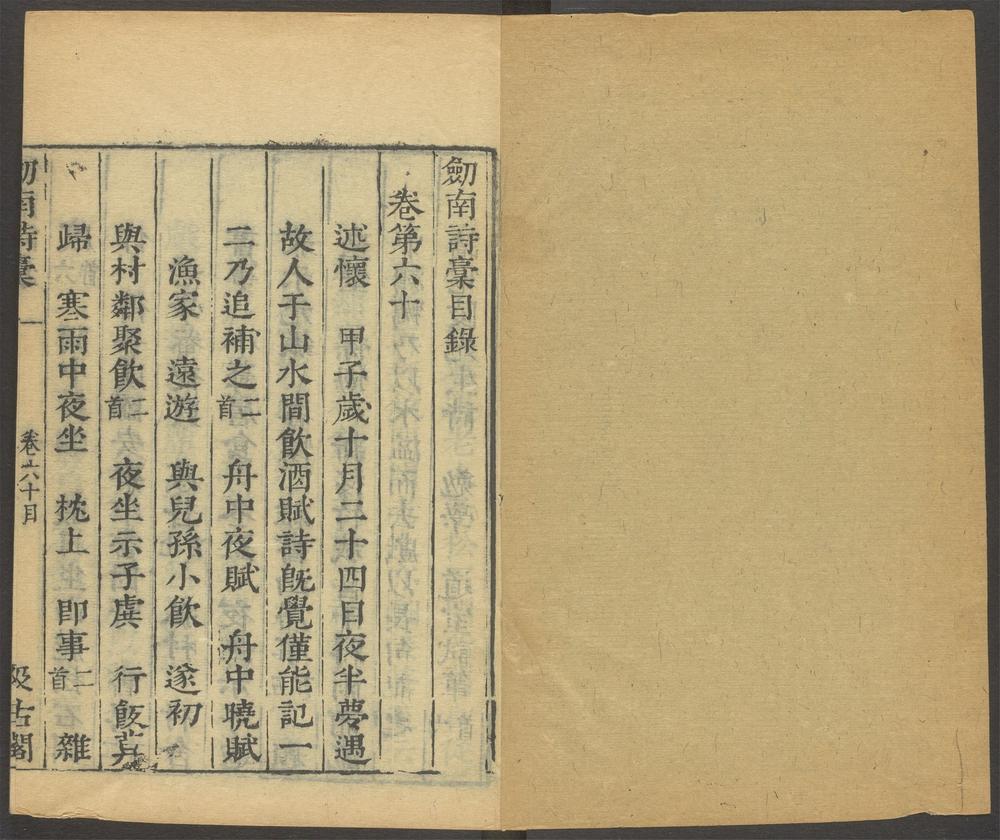 劒南詩稾目錄
卷第六十
述懷 甲子歲十月二十四日夜半夢遇
故人于山水間飲酒賦詩旣覺僅能記一
二乃追補之二首 舟中夜賦 舟中曉賦
漁家 遠遊 與兒孫小飲 遂初
與村鄰聚飲二首 夜坐示子虡 行飯
歸 寒雨中夜坐 枕上 卽事二首 雜
劒南詩稾 一 卷六十目 汲古閣